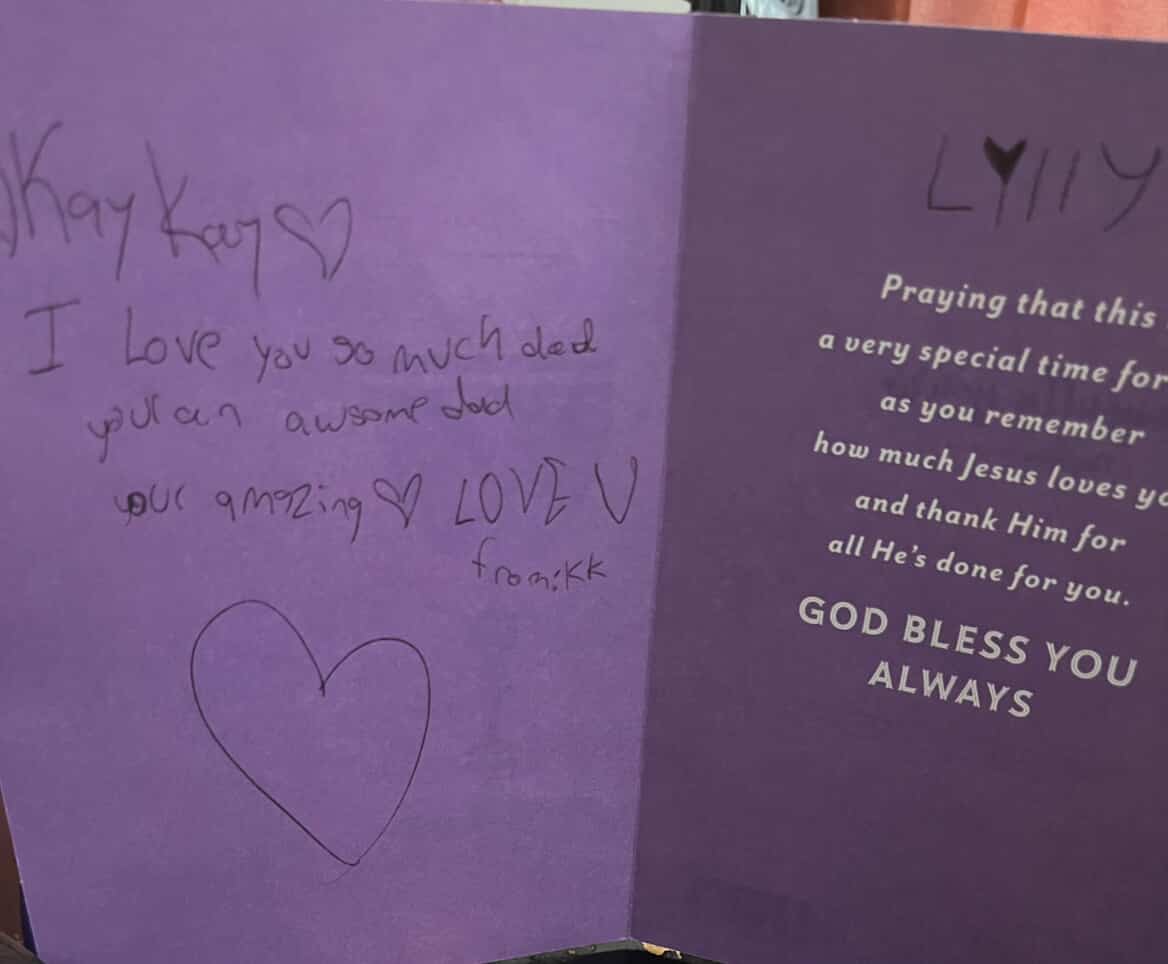 Kay Kay
I Love you so much dad
your an awsome dad
your amazing LOVE U
from:KK
Lylly
Praying that this
a very special time for
as you remember
how much Jesus loves yo
and thank Him for
all He's done for you.
GOD BLESS YOU
ALWAYS